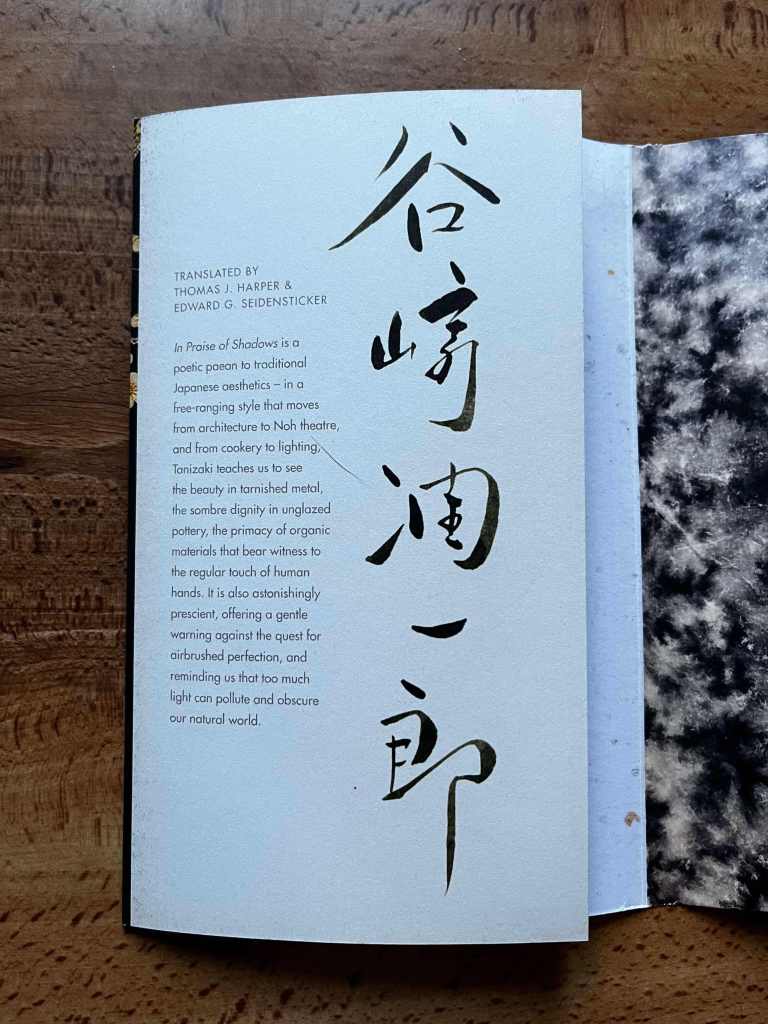 谷崎潤一郎
TRANSLATED BY
THOMAS J. HARPER &
EDWARD G. SEIDENSTICKER
In Praise of Shadows is a
poetic paean to traditional
Japanese aesthetics – in a
free-ranging style that moves
from architecture to Noh theatre,
and from cookery to lighting,
Tanizaki teaches us to see
the beauty in tarnished metal,
the sombre dignity in unglazed
pottery, the primacy of organic
materials that bear witness to
the regular touch of human
hands. It is also astonishingly
prescient, offering a gentle
warning against the quest for
airbrushed perfection, and
reminding us that too much
light can pollute and obscure
our natural world.